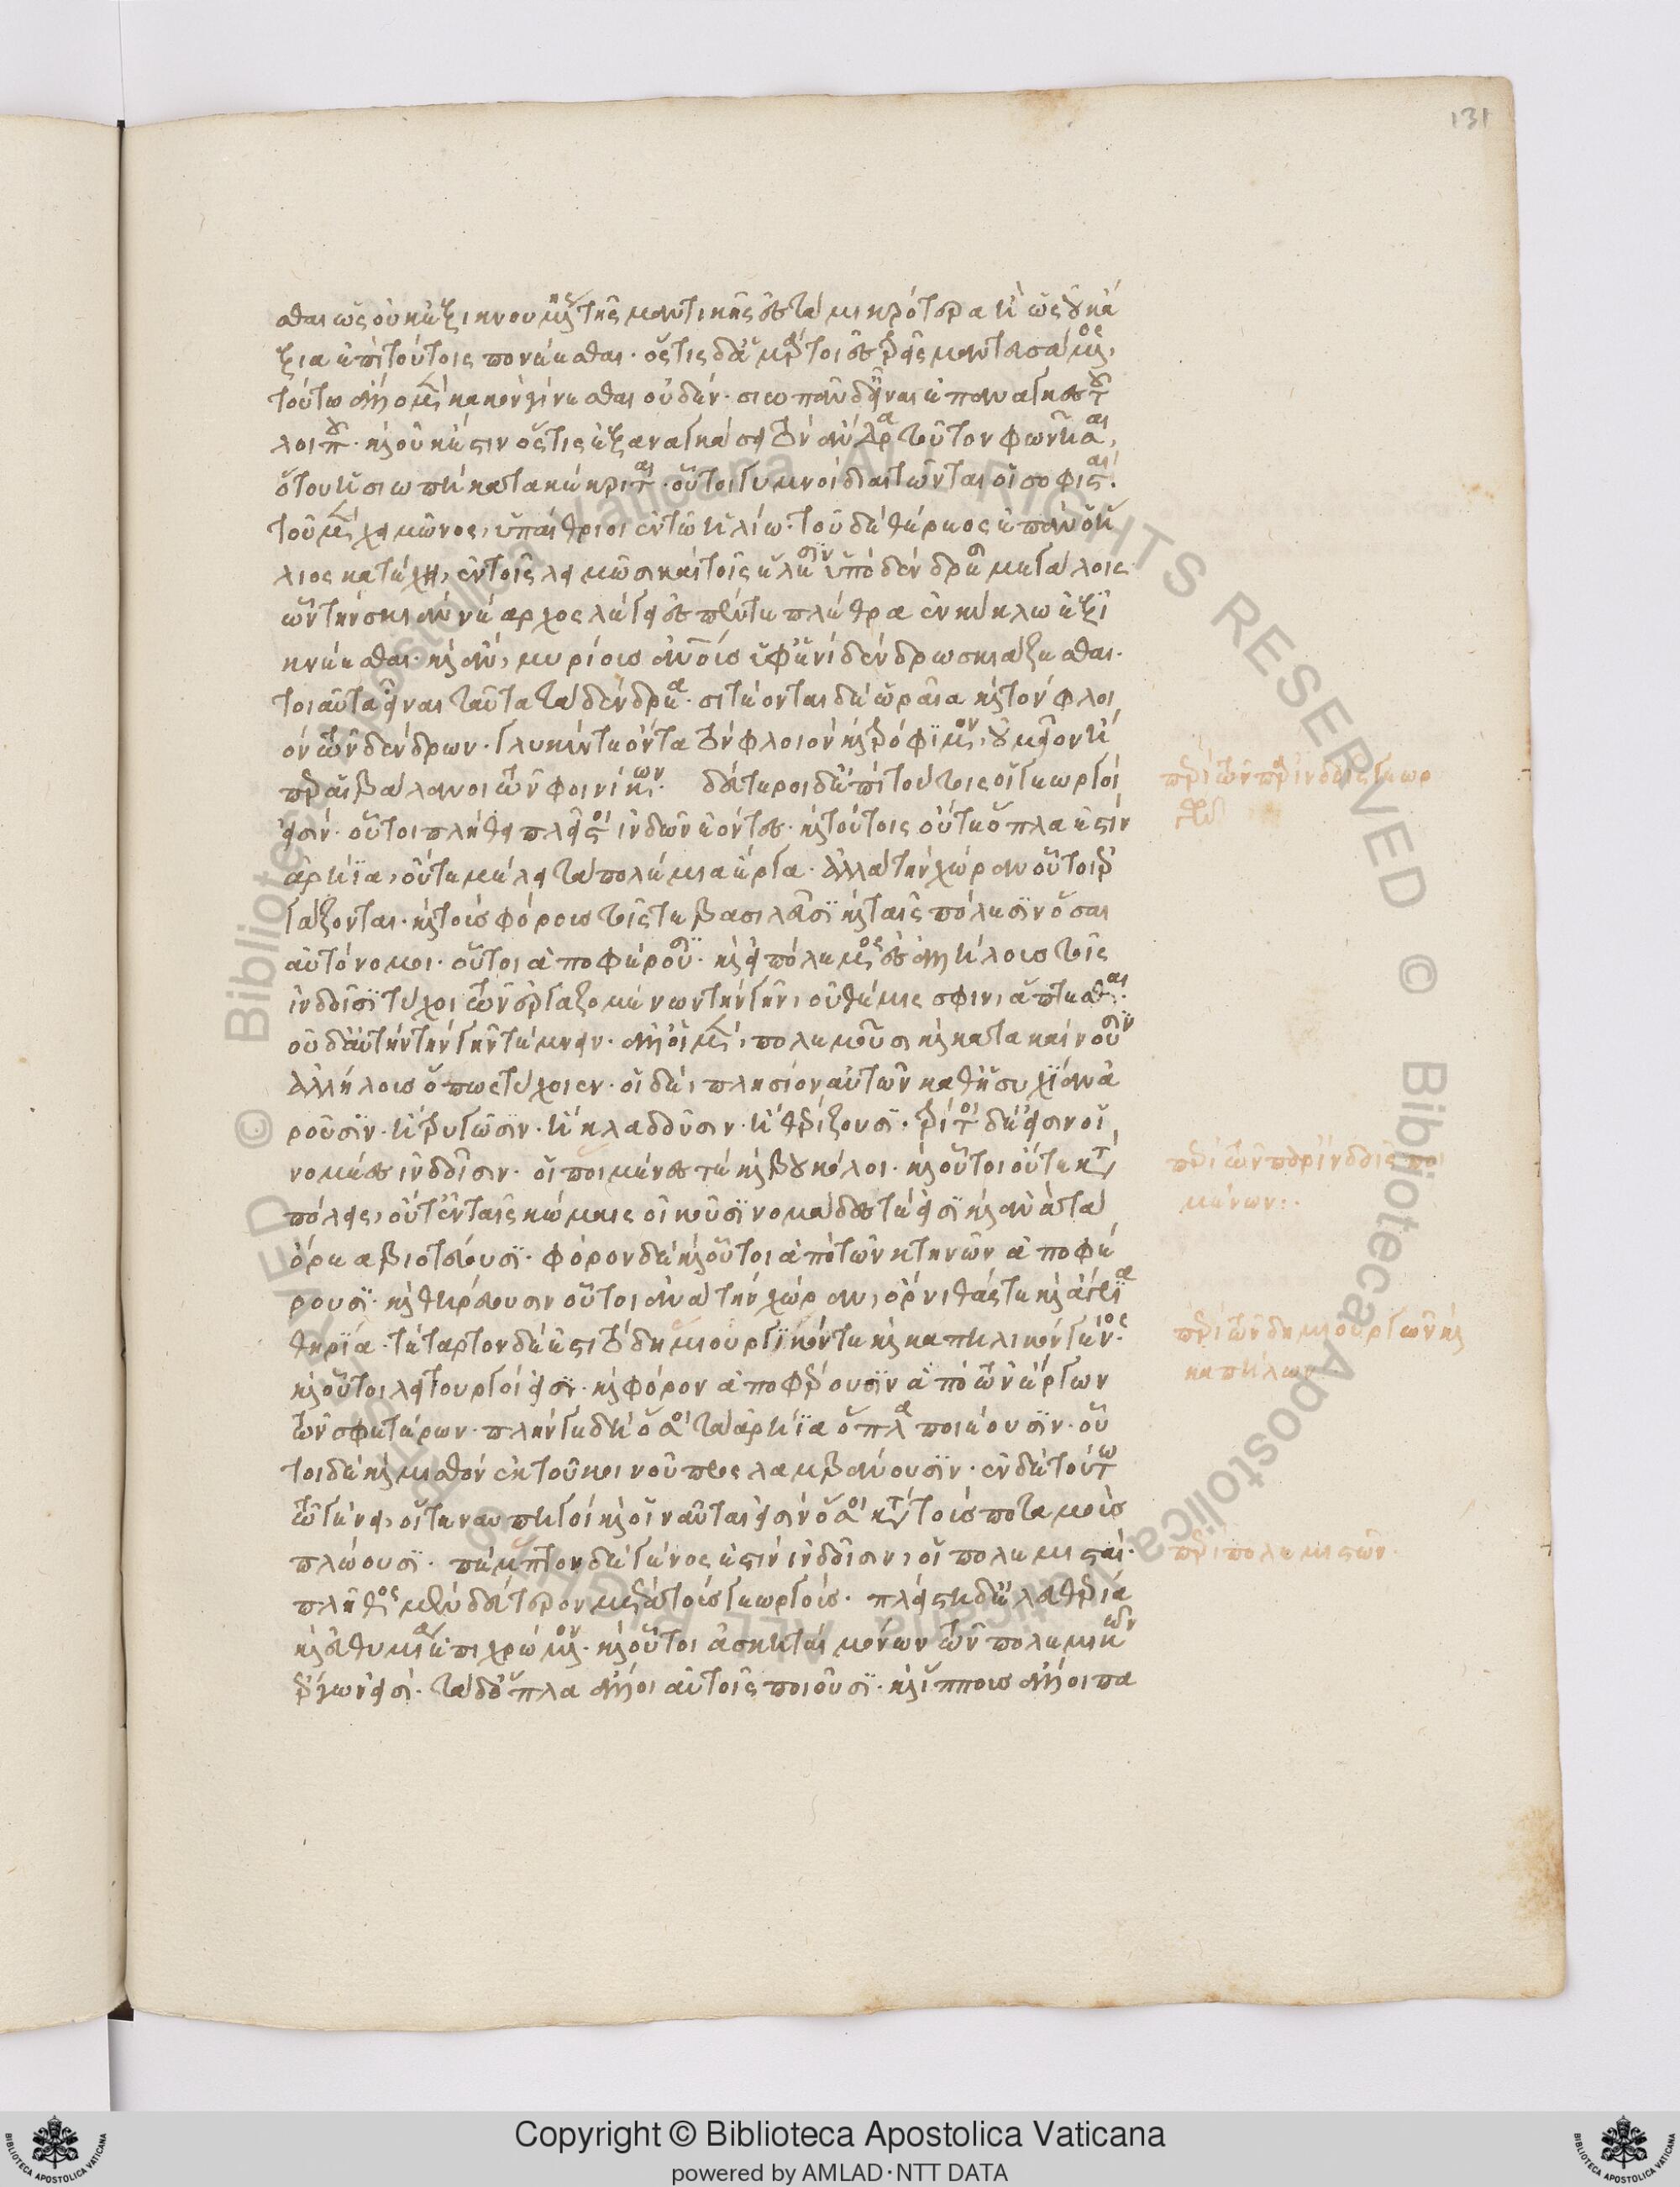 131
σθαι ὡς οὐκ ἐξικνουμένης τῆς μαντικῆς ἐς τὰ μικρότερα· ἢ ὡς οὐκ ἄ
ξια ἐπὶ τούτοις πονέεσθαι. ὅστις δὲ ἁμάρτοι ἐς τρὶς μαντευσάμενος,
τούτῳ ἄλλο μὲν κακὸν γίνεσθαι οὐδέν· σιωπᾶν δὲ εἶναι ἐπάναγκες τοῦ
λοιποῦ· καὶ οὐκ ἔστιν ὅστις ἐξαναγκάσει τὸν ἄνδρα τοῦτον φωνῆσαι,
ὅτου ἡ σιωπὴ κατακέκριται. οὗτοι γυμνοὶ διαιτῶνται οἱ σοφισταί·
τοῦ μὲν χειμῶνος, ὑπαίθριοι ἐν τῷ ἡλίῳ· τοῦ δὲ θέρεος ἐπὰν ὁ ἥ
λιος κατέχῃ, ἐν τοῖς λειμῶσι καὶ τοῖς ἕλεσιν ὑπὸ δένδρεσι μεγάλοις
ὧν τὴν σκιὰν νέαρχος λέγει ἐς πέντε πλέθρα ἐν κύκλῳ ἐξι
κνέεσθαι· καὶ ἂν, μυρίους ἀνθρώπους ὑφ' ἑνὶ δένδρῳ σκιάζεσθαι·
τοιαῦτα εἶναι ταῦτα τὰ δένδρεα. σιτέονται δὲ ὡραῖα καὶ τὸν φλοι
ὸν τῶν δένδρων· γλυκύν τε ὄντα τὸν φλοιὸν καὶ τρόφιμον, οὐ μεῖον ἢ
περ αἱ βάλανοι τῶν φοινίκων. δεύτεροι δ' ἐπὶ τούτοις οἱ γεωργοί
εἰσιν· οὗτοι πλήθει πλεῖστοι ἰνδῶν ἐόντες· καὶ τούτοις οὔτε ὅπλα ἐστὶν
ἀρήϊα, οὔτε μέλει τὰ πολέμια ἔργα· ἀλλὰ τὴν χώραν οὗτοι ἐρ
γάζονται· καὶ τοὺς φόρους τοῖς τε βασιλεῦσι καὶ ταῖς πόλεσιν ὅσαι
αὐτόνομοι· οὗτοι ἀποφέρουσι· καὶ εἰ πόλεμος ἐς ἀλλήλους τοῖς
ἰνδοῖσι τύχοι τῶν ἐργαζομένων τὴν γῆν, οὐ θέμις σφιν, ἅπτεσθαι·
οὐδὲ αὐτὴν τὴν γῆν τέμνειν· ἀλλ' οἱ μὲν, πολεμοῦσι καὶ κατακαίνουσιν
ἀλλήλους ὅπως τύχοιεν· οἱ δὲ, πλησίον αὐτῶν καθ' ἡσυχίαν ἀ
ροῦσιν· ἢ τρυγῶσιν· ἢ κλαδοῦσιν· ἢ θερίζουσι. τρίτοι δέ εἰσιν οἱ
νομέες ἰνδοῖσιν· οἱ ποιμένες τέ καὶ βουκόλοι· καὶ οὗτοι οὔτε κατὰ
πόλεις, οὔτ' ἐν ταῖς κώμαις οἰκοῦσι νομάδες τέ εἰσι καὶ ἀνὰ τὰ
ὄρεα βιοτεύουσι· φόρον δὲ καὶ οὗτοι ἀπὸ τῶν κτηνῶν ἀποφέ
ρουσι· καὶ θηρεύουσιν οὗτοι ἀνὰ τὴν χώραν, ὄρνιθάς τε καὶ ἄγρια
θηρία. τέταρτον δέ ἐστι τὸ δημιουργικόν τε καὶ καπηλικὸν γένος·
καὶ οὗτοι λειτουργοί εἰσι· καὶ φόρον ἀποφέρουσιν ἀπὸ τῶν ἔργων
τῶν σφετέρων· πλήν γε δὴ ὅσοι τὰ ἀρήϊα ὅπλα ποιέουσιν· οὗ
τοι δὲ καὶ μισθὸν ἐκ τοῦ κοινοῦ προσλαμβάνουσιν· ἐν δὲ τούτῳ
τῷ γένει, οἵ τε ναυπηγοὶ καὶ οἱ ναῦταί εἰσιν ὅσοι κατὰ τοὺς ποταμοὺς
πλώουσι. πέμπτον δὲ γένος ἐστὶν ἰνδοῖσιν, οἱ πολεμισταί·
πλήθος μὲν δεύτερον μετὰ τοὺς γεωργούς· πλείστῃ δὲ ἐλευθερίᾳ
καὶ εὐθυμίᾳ ἐπιχρεώμενον· καὶ οὗτοι ἀσκηταὶ μόνων τῶν πολεμικῶν
ἔργων εἰσί· τὰ δὲ ὅπλα ἄλλοι αὐτοῖς ποιοῦσι· καὶ ἵππους ἄλλοι πα
περὶ τῶν παρ' ἰνδοῖς γεωρ
γῶν
περὶ τῶν παρ' ἰνδοῖς ποι
μένων:.
περὶ τῶν δημιουργῶν καὶ
καπήλων
περὶ πολεμιστῶν.
Copyright © Biblioteca Apostolica Vaticana
powered by AMLAD·NTT DATA